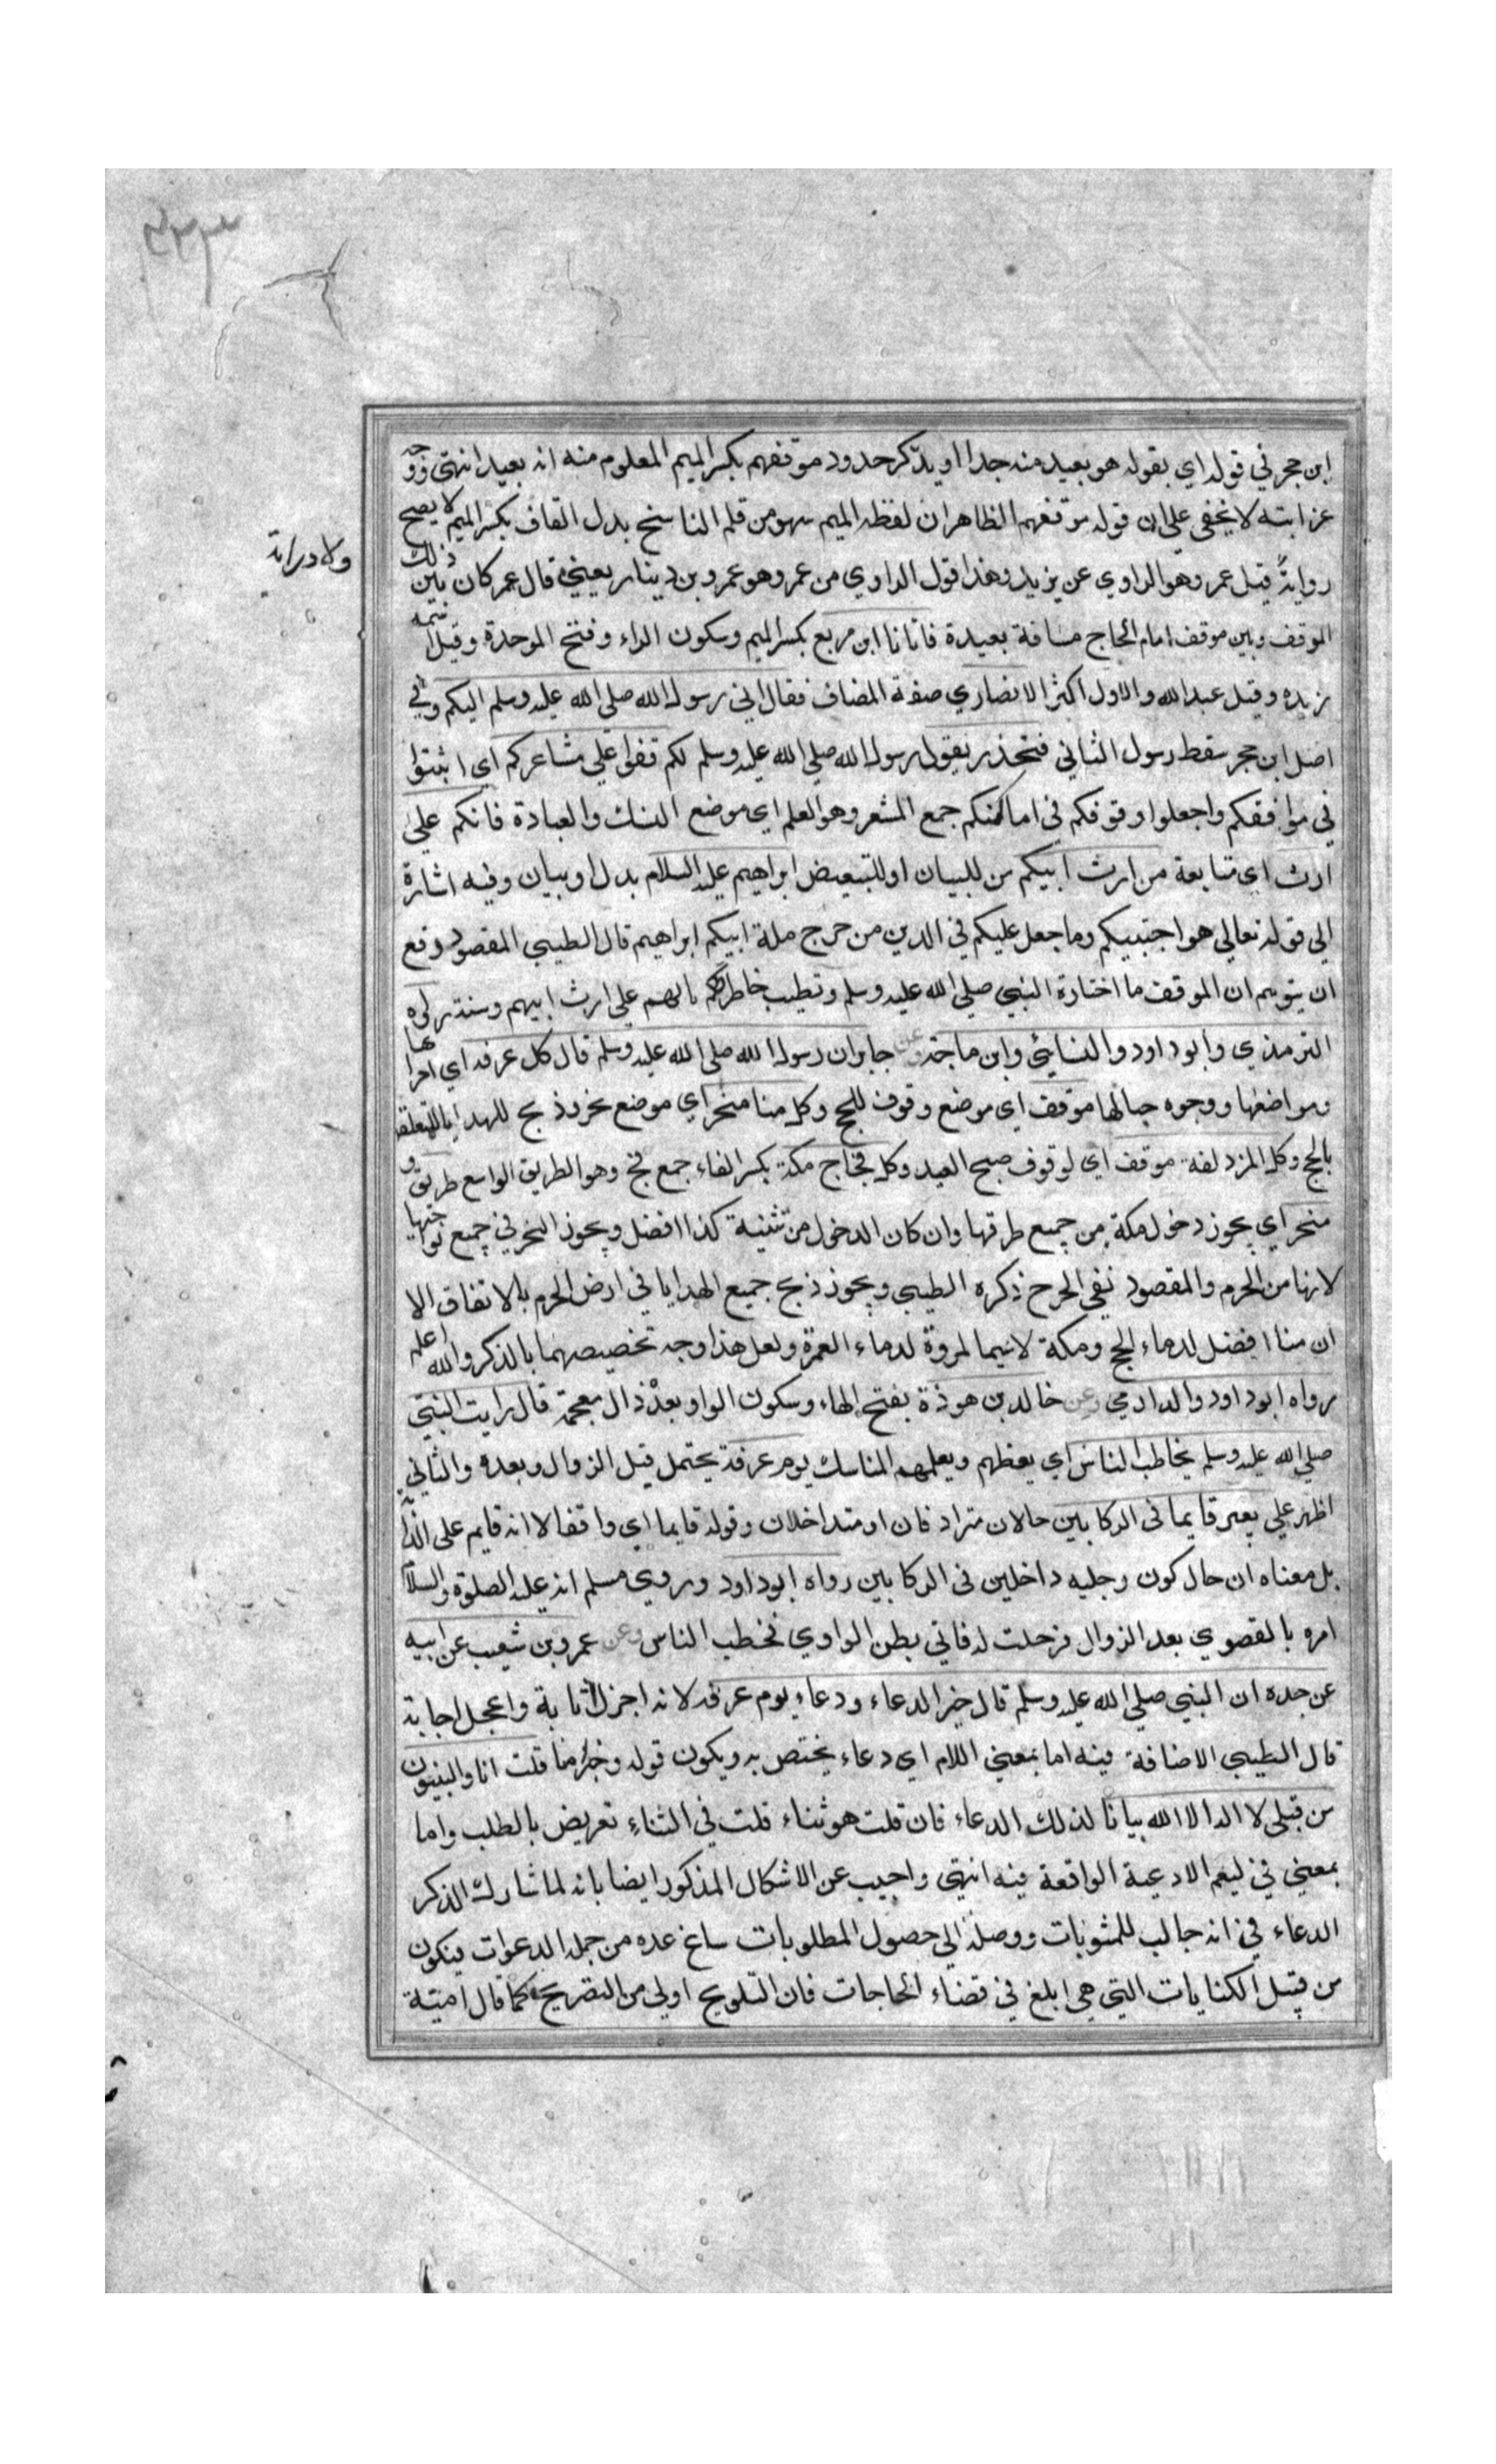 ٤٣٣
ابن حجر في قوله اي بقوله هو بعيد منه جدا او يذكر حدود موقفهم بكسر الميم المعلوم منه انه بعيد انتهى ووجه
غرابته لا يخفى على ان قوله موقفهم الظاهر ان لفظه الميم سهو من قلم الناسخ بدل القاف بكسر الميم لا يصح
ولا دراية
رواية قيل عمرو هو الراوي عن يزيد وهذا قول الراوي من عمرو هو عمرو بن دينار يعني قال عمر كان بين ذلك
الموقف وبين موقف امام الحاج مسافة بعيدة فاتانا ابن مربع بكسر الميم وسكون الراء وفتح الموحدة وقيل اسمه
زيده وقيل عبد الله والاول اكثر الانصاري صفة المضاف فقال اني رسول الله صلي الله عليه وسلم اليكم وفي
اصل ابن حجر سقط رسول الثاني فتحذر يقول رسول الله صلي الله عليه وسلم لكم قفوا علي مشاعركم اي اثبتوا
في مواقفكم واجعلوا وقوفكم في اماكنكم جمع المشعر وهو العلم اي موضع النسك والعبادة فانكم علي
ارث اي متابعة من ارث ابيكم من للبيان او للتبعيض ابراهيم عليه السلام بدل او بيان وفيه اشارة
الي قوله تعالي هو اجتبيكم وما جعل عليكم في الدين من حرج ملة ابيكم ابراهيم قال الطيبي المقصود دفع
ان يتوهم ان الموقف ما اختارة النبي صلي الله عليه وسلم وتطيب خاطرهم بانهم على ارث ابيهم وسنته رواه
الترمذي وابو داود والنسائي وابن ماجة وعن جابر ان رسول الله صلي الله عليه وسلم قال كل عرفه اي اجزاءها
ومواضعها ووجوه جبالها موقف اي موضع وقوف للحج وكل منا منحر اي موضع نحر وذبح للهدايا المتعلقة
بالحج وكل المزدلفة موقف اي لوقوف صبح العيد وكل فجاج مكة بكسر الفاء جمع فج وهو الطريق الواسع طريق و
منحر اي يجوز دخول مكة من جميع طرقها وان كان الدخول من ثنية كذا افضل ويجوز النحر في جميع نواحيها
لانها من الحرم والمقصود نفي الحرج ذكره الطيبي ويجوز ذبح جميع الهدايا في ارض الحرم بالاتفاق الا
ان منا افضل لدماء الحج ومكة لاسيما المروة لدماء العمرة ولعل هذا وجه تخصيصهما بالذكر والله اعلم
رواه ابو داود والدارمي وعن خالد بن هوذة بفتح الهاء وسكون الواو بعده ذال معجمة قال رايت النبي
صلي الله عليه وسلم يخاطب الناس اي يعظهم ويعلمهم المناسك يوم عرفة يحتمل قبل الزوال وبعده والثاني
اظهر علي بعير قايما في الركابين حالان مترادفان او متداخلان وقوله قايما اي واقفا لا انه قايم على الدابة
بل معناه ان حال كون رجليه داخلين في الركابين رواه ابو داود وروي مسلم انه عليه الصلوة والسلام
امره بالقصوي بعد الزوال فرحلت له فاتي بطن الوادي فخطب الناس وعن عمرو بن شعيب عن ابيه
عن جده ان النبي صلي الله عليه وسلم قال خير الدعاء ودعاء يوم عرفه لانه اجزل اثابة واعجل اجابة
قال الطيبي الاضافة فيه اما بمعني اللام اي دعاء يختص به ويكون قوله وخير ما قلت انا والنبيون
من قبلي لا اله الا الله بيانا لذلك الدعاء فان قلت هو ثناء قلت في الثناء تعريض بالطلب واما
بمعني في ليعم الادعية الواقعة فيه انتهي واجيب عن الاشكال المذكور ايضا بانه لما شارك الذكر
الدعاء في انه جالب للمثوبات ووصلة الي حصول المطلوبات ساغ عده من جملة الدعوات فيكون
من قبيل الكنايات التي هي ابلغ في قضاء الحاجات فان التلويح اولي من التصريح كما قال امية